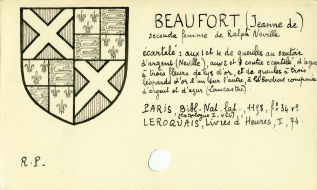 BEAUFORT (Jeanne de)
seconde femme de Ralph Neville
écartelé : aux 1 et 4 de gueules au sautoir
d'argent (Neville), aux 2 et 3 contre écartelé d'azur
à trois fleurs de lys d'or, et de gueules à trois
léopards d'or l'un sur l'autre à la bordure componée
d'argent et d'azur (Lancastre).
PARIS, Bibl. Nat. lat. 1158, fo. 34 vo.
(Catalogue I, 421)
LEROQUAIS, Livres d'Heures, I, 74.
R.P.